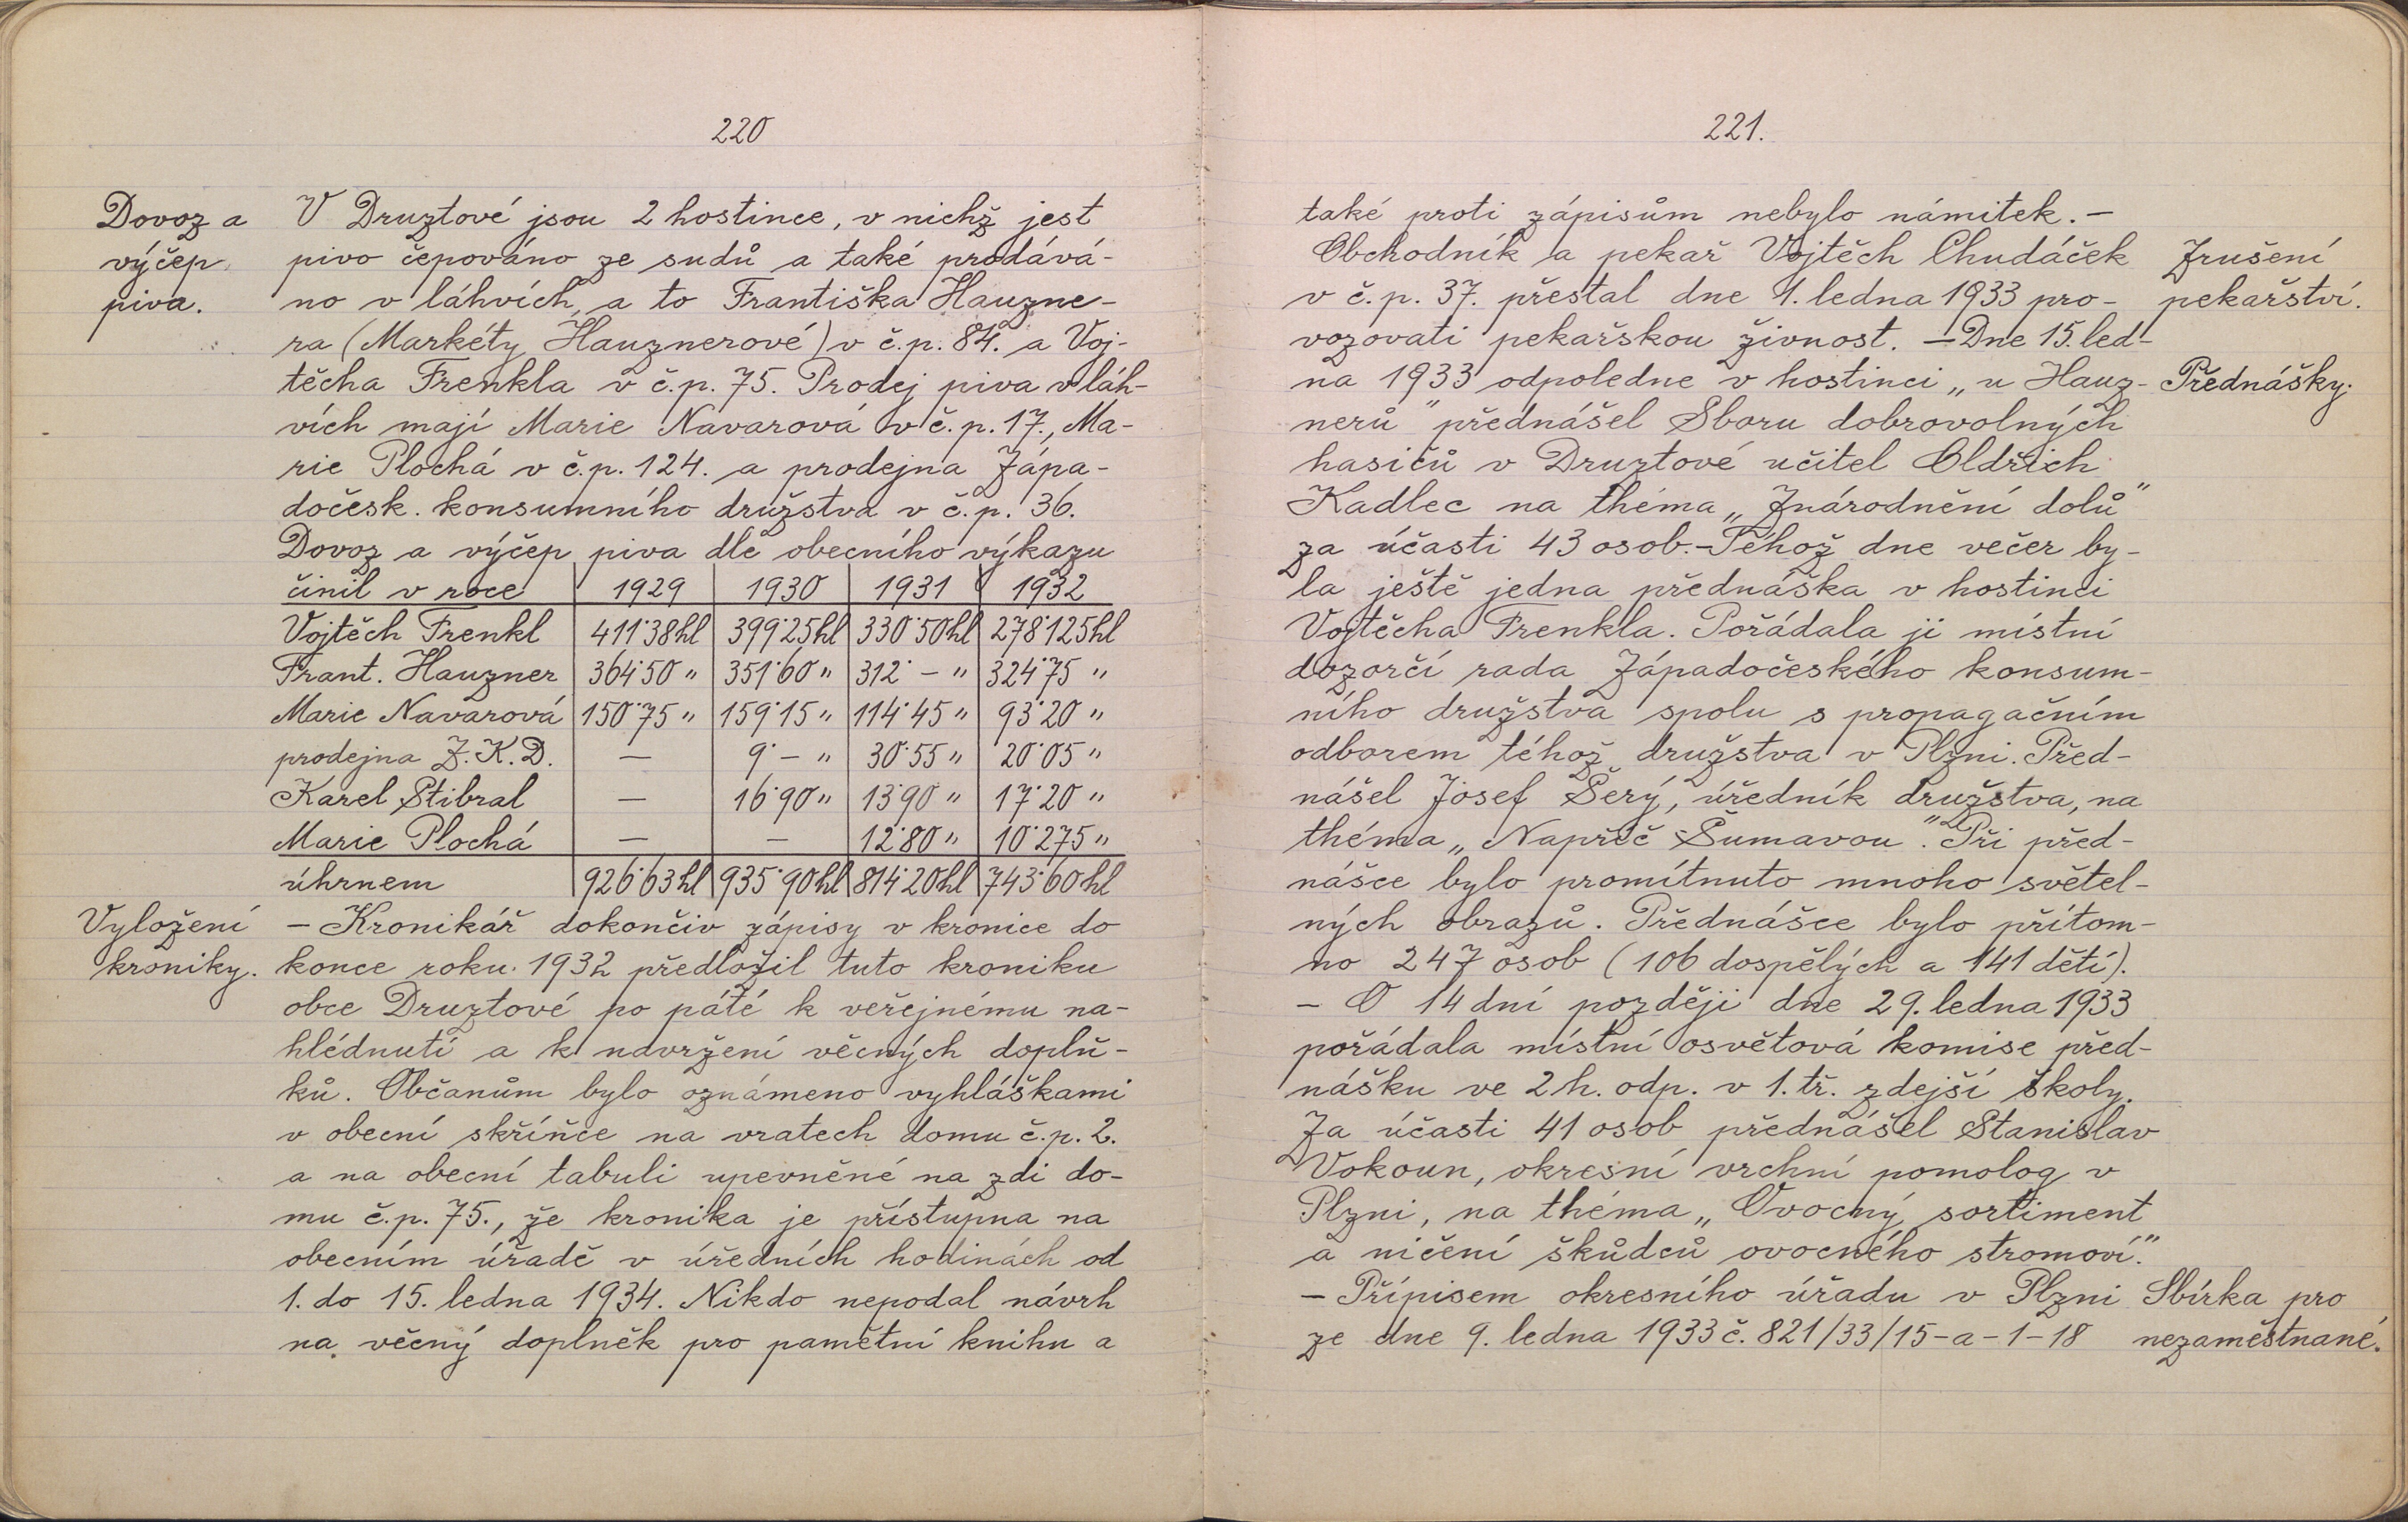 220
Dovoz a
výčep
piva.
V Druztové jsou 2 hostince, v nichž jest
pivo čepováno ze sudů a také prodává-
no v láhvích, a to Františka Hauzne-
ra (Markéty Hauznerové) v č.p. 84. a Voj-
těcha Frenkla v č.p. 75. Prodej piva v láh-
vích mají Marie Navarová v č.p. 17., Ma-
rie Plochá v č.p. 124. a prodejna Zápa-
dočesk. konsumního družstva v č.p. 36.
Dovoz a výčep piva dle obecního výkazu
činil v roce 1929 1930 1931 1932
Vojtěch Frenkl 411·38hl 399·25hl 330·50hl 278·125hl
Frant. Hauzner 364·50 „ 351·60 „ 312·– „ 324·75 „
Marie Navarová 150·75 „ 159·15 „ 114·45 „ 93·20 „
prodejna Z.K.D. — 9·– „ 30·55 „ 20·05 „
Karel Stibral — 16·90 „ 13·90 „ 17·20 „
Marie Plochá — — 12·80 „ 10·275 „
úhrnem 926·63hl 935·90hl 814·20hl 743·60hl
Vyložení
kroniky.
– Kronikář dokončiv zápisy v kronice do
konce roku 1932 předložil tuto kroniku
obce Druztové po páté k veřejnému na-
hlédnutí a k navržení věcných doplň-
ků. Občanům bylo oznámeno vyhláškami
v obecní skříňce na vratech domu č.p. 2.
a na obecní tabuli upevněné na zdi do-
mu č.p. 75., že kronika je přístupna na
obecním úřadě v úředních hodinách od
1. do 15. ledna 1934. Nikdo nepodal návrh
na věcný doplněk pro pamětní knihu a
221.
také proti zápisům nebylo námitek. –
Obchodník a pekař Vojtěch Chudáček
v č.p. 37. přestal dne 1. ledna 1933 pro-
vozovati pekařskou živnost. – Dne 15. led-
na 1933 odpoledne v hostinci „u Hauz-
nerů" přednášel Sboru dobrovolných
hasičů v Druztové učitel Oldřich
Kadlec na théma „Znárodnění dolů"
za účasti 43 osob. – Téhož dne večer by-
la ještě jedna přednáška v hostinci
Vojtěcha Frenkla. Pořádala ji místní
dozorčí rada Západočeského konsum-
ního družstva spolu s propagačním
odborem téhož družstva v Plzni. Před-
nášel Josef Šerý, úředník družstva, na
théma „Napříč Šumavou". Při před-
nášce bylo promítnuto mnoho světel-
ných obrazů. Přednášce bylo přítom-
no 247 osob (106 dospělých a 141 dětí).
– O 14 dní později dne 29. ledna 1933
pořádala místní osvětová komise před-
nášku ve 2 h. odp. v 1. tř. zdejší školy.
Za účasti 41 osob přednášel Stanislav
Vokoun, okresní vrchní pomolog v
Plzni, na théma „Ovocný sortiment
a ničení škůdců ovocného stromoví."
– Přípisem okresního úřadu v Plzni
ze dne 9. ledna 1933 č. 821/33/15-a-1-18
Zrušení
pekařství.
Přednášky.
Sbírka pro
nezaměstnané.